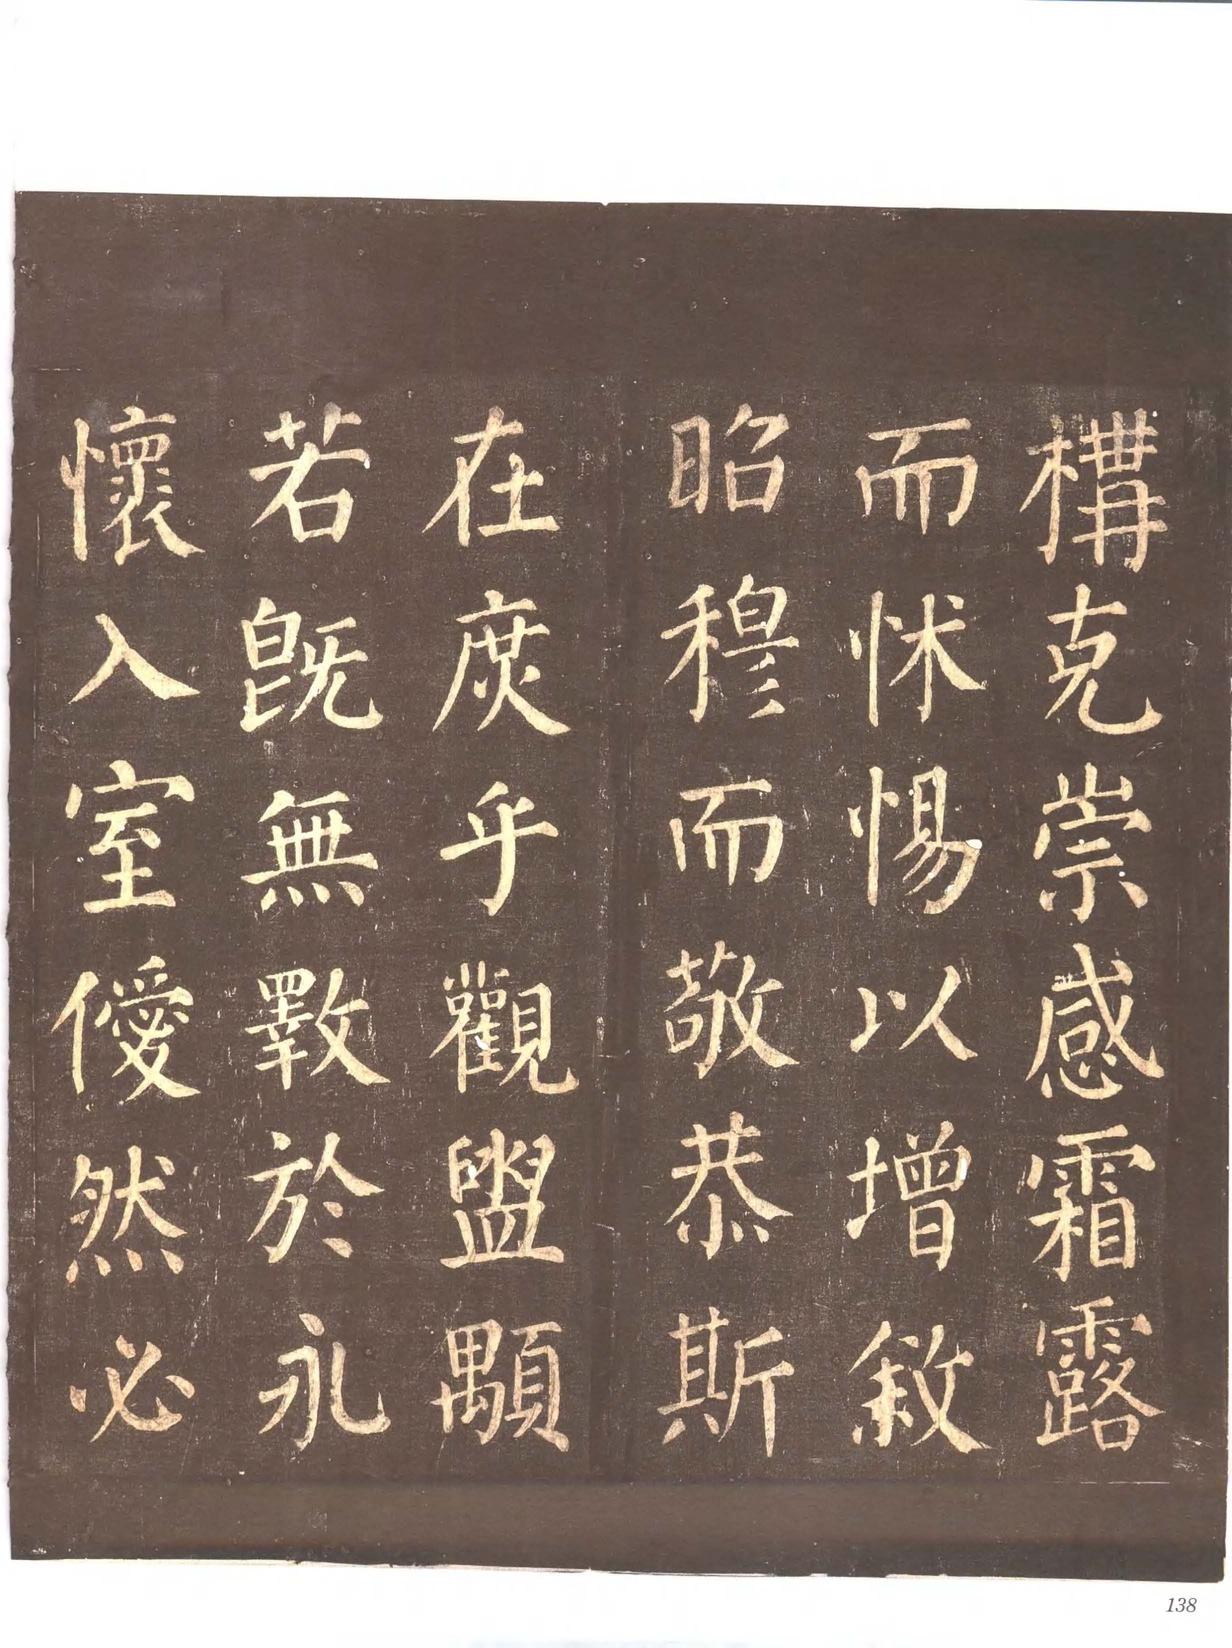 構克崇感霜露
而怵惕以增敘
昭穆而敬恭斯
在庶乎觀盥顒
若既無斁於永
懷入室僾然必
138